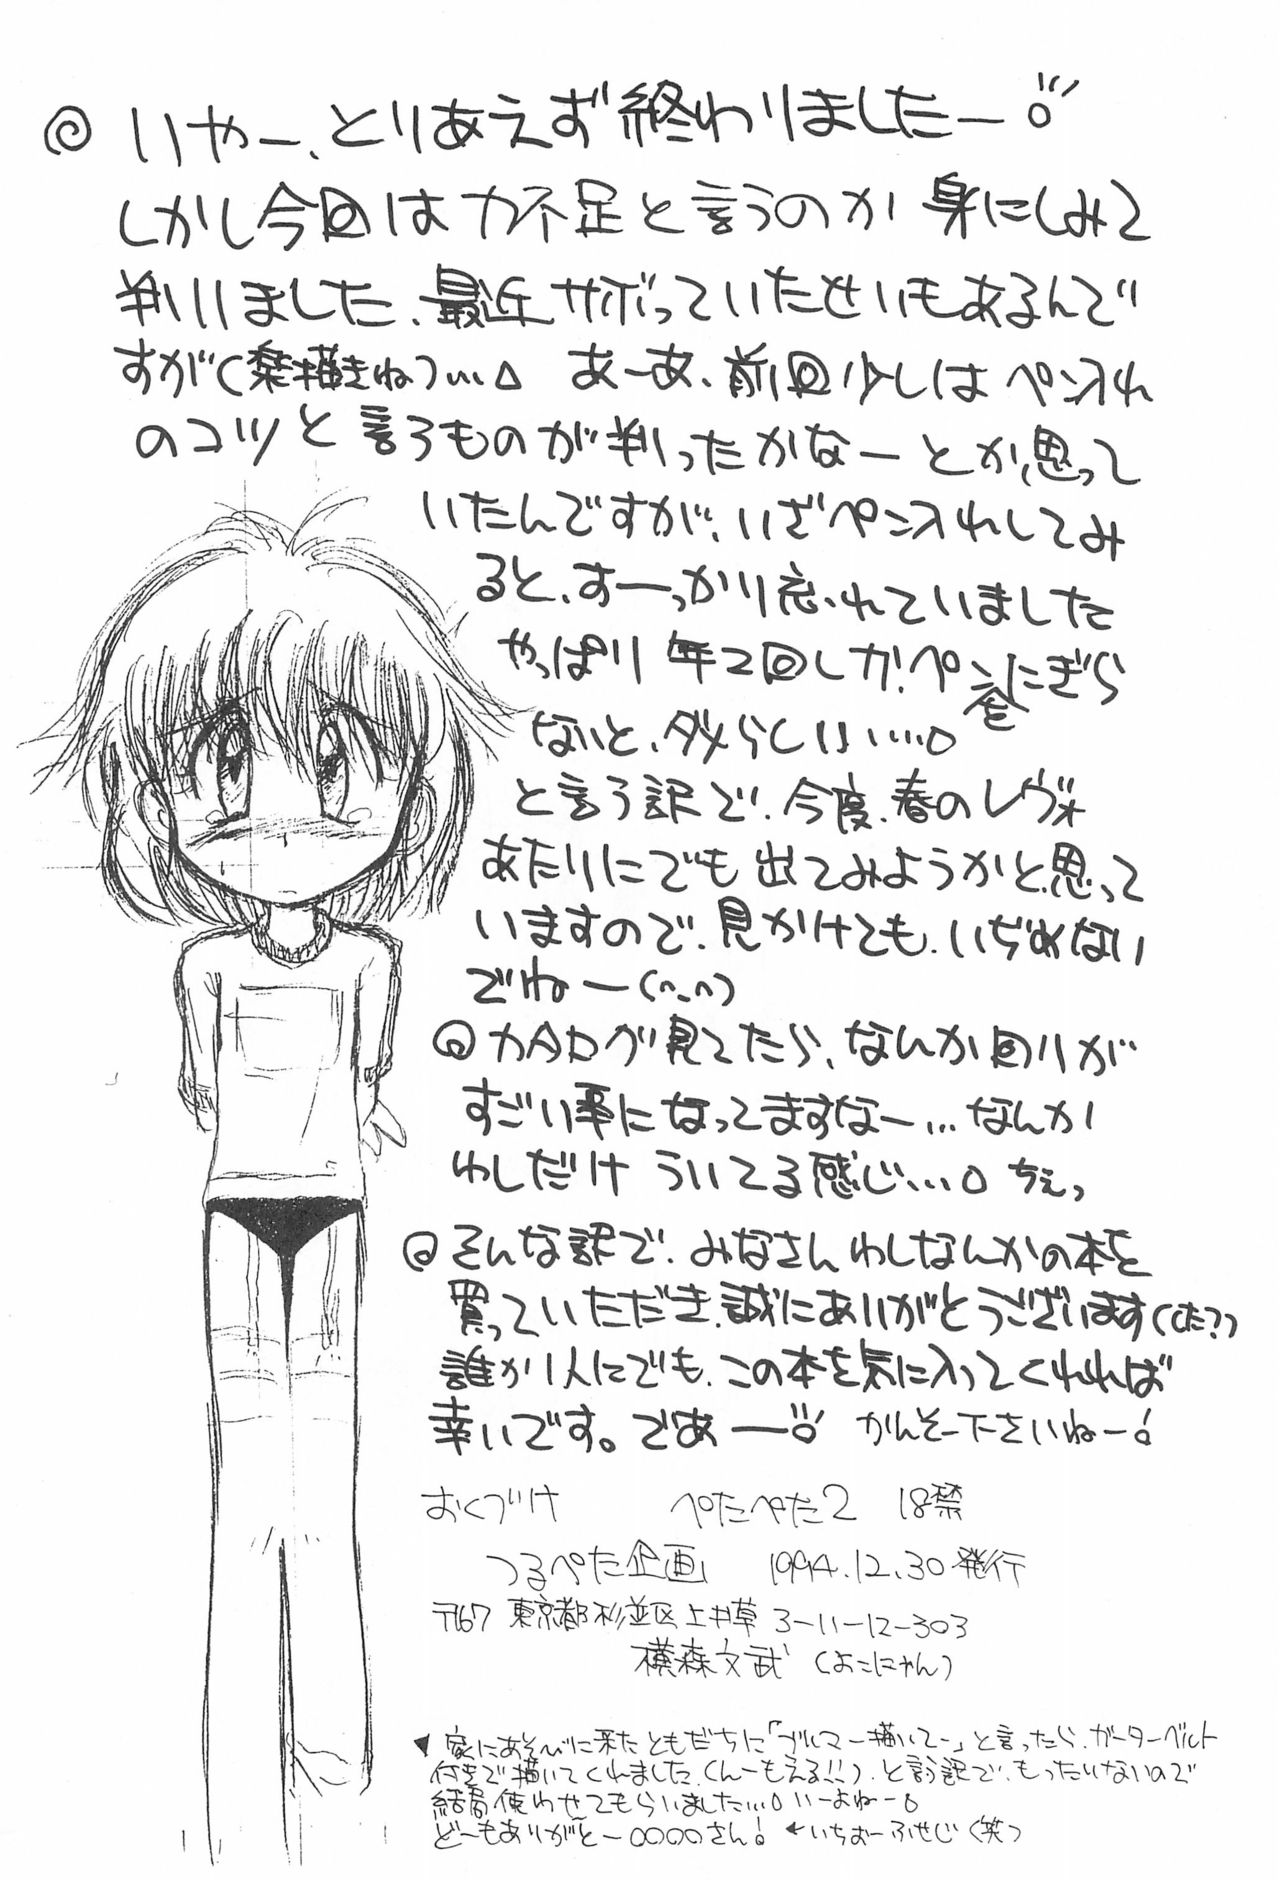 ◎ いやー、とりあえず終わりましたー
しかし今回は力不足と言うのが身にしみて
判りました、最近サボっていたせいもあるんで
すが(楽描きね)…。あーあ、前回少しはペン入れ
のコツと言うものが判ったかなーとか思って
いたんですが、いざペン入れしてみ
ると、すーっかり忘れていました
やっぱり年2回しかペンをにぎら
ないと、ダメらしい…。
と言う訳で、今度、春のレヴォ
あたりにでも出てみようかと思って
いますので、見かけても、いぢめない
でねー(^-^)
◎カタログ見てたら、なんか回りが
すごい事になってますなー…なんか
わしだけ ういてる感じ…。ちぇっ
◎そんな訳で、みなさんわしなんかの本を
買っていただき、誠にありがとうございます(した?)
誰か1人にでも、この本を気に入ってくれれば
幸いです。であー かんそー下さいねー!
おくづけ ぺたぺた2 18禁
つるぺた企画 1994.12.30発行
〒167 東京都杉並区上井草3-11-12-303
横森文武 (よこにゃん)
▼ 家にあそびに来たともだちに「ブルマー描いてー」と言ったら、ガーターベルト
付きで描いてくれました、(んーもえる!!)、と言う訳で、もったいないので
結局使わせてもらいました…。いーよねー。
どーもありがとー○○○○さん! ←いちおーふせじ(笑)